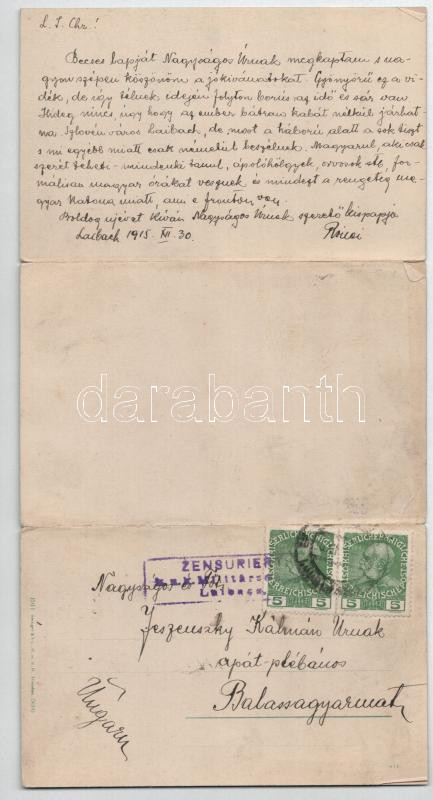 L. J. Chr.!
Becses lapját Nagyságos Úrnak megkaptam s na-
gyon szépen köszönöm a jókivánatokat. Gyönyörű ez a vi-
dék, de így télnek idején folyton borús az idő és sár van
Hideg nincs, úgy hogy az ember bátran kabát nélkül járhat-
na. Szlovén város Laibach, de most a háború alatt a sok tiszt
s mi egyébb miatt csak németül beszélnek. Magyarul, aki csak
szerét teheti - mindenki tanul, ápolóhölgyek, orvosok stb. for-
máliter magyar órákat vesznek és mindezt a rengeteg ma-
gyar katona miatt, ami e fronton van.
Boldog újévet kíván Nagyságos Úrnak szerető kispapja
Laibach 1915. XII. 30.
darabanth
ZENSURIER
k.u.k. Militärze
Laibach
Nagyságos és Ft.
Jeszenszky Kálmán Úrnak
apát-plébános
Balassagyarmat
Ungarn
5 5